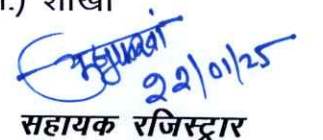 .) शाखा
22/01/25
सहायक रजिस्ट्रार